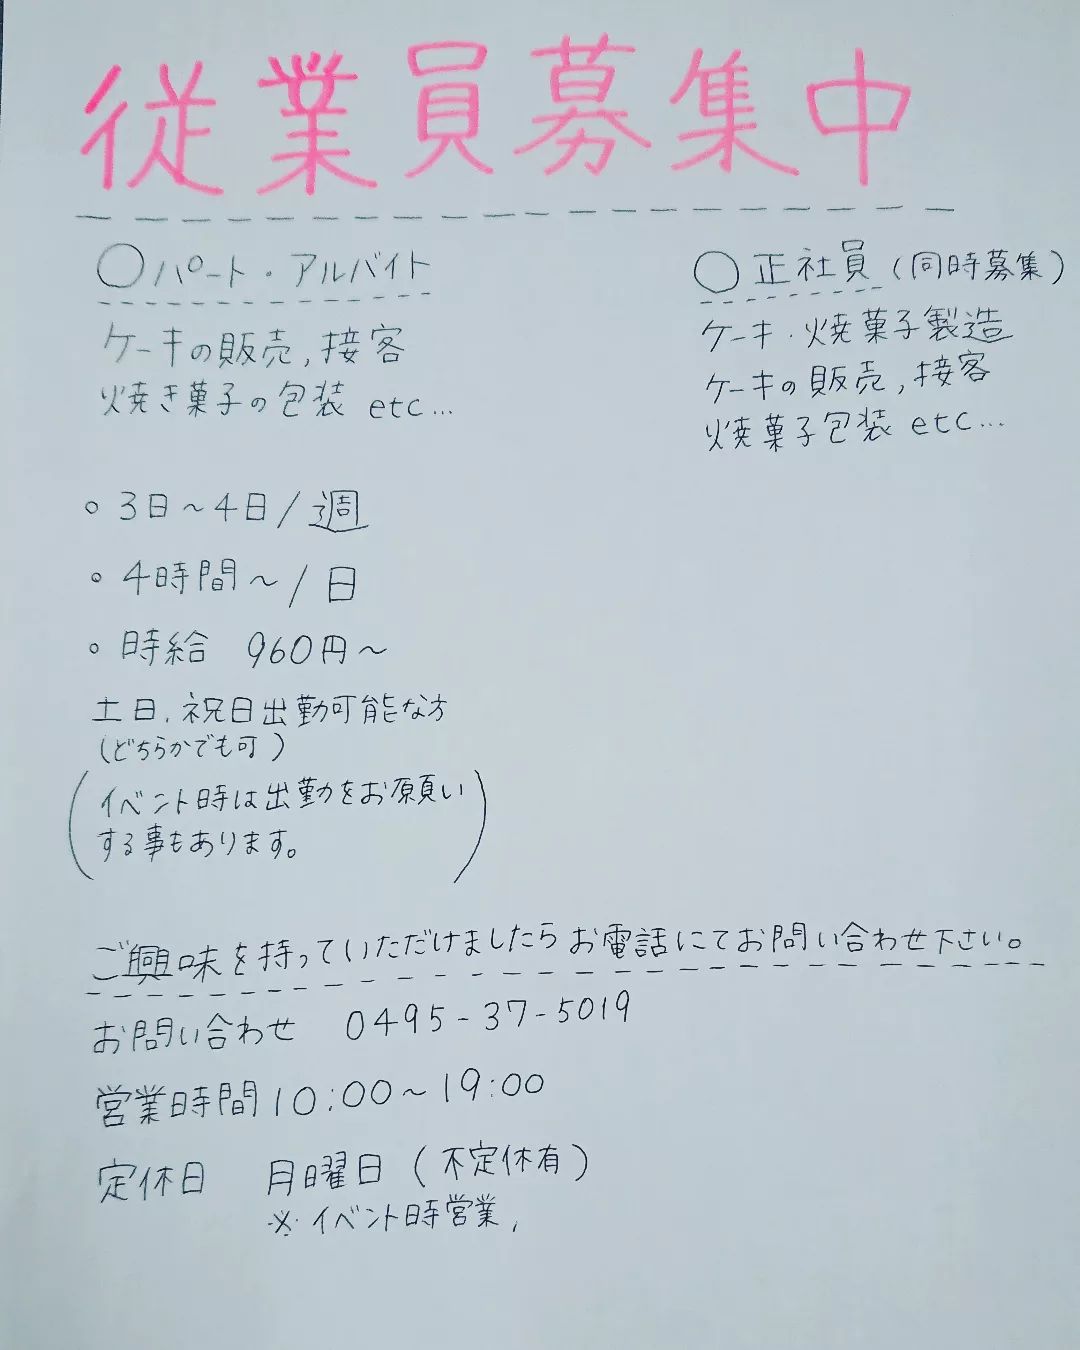 従業員募集中
○パート・アルバイト
ケーキの販売,接客
焼き菓子の包装 etc...
○正社員(同時募集)
ケーキ・焼菓子製造
ケーキの販売,接客
焼菓子包装 etc...
○ 3日～4日/週
○ 4時間～/日
○ 時給 960円～
土日,祝日出勤可能な方
(どちらかでも可)
(イベント時は出勤をお願い
する事もあります。)
ご興味を持っていただけましたらお電話にてお問い合わせ下さい。
お問い合わせ 0495-37-5019
営業時間10:00～19:00
定休日 月曜日(不定休有)
※イベント時営業,